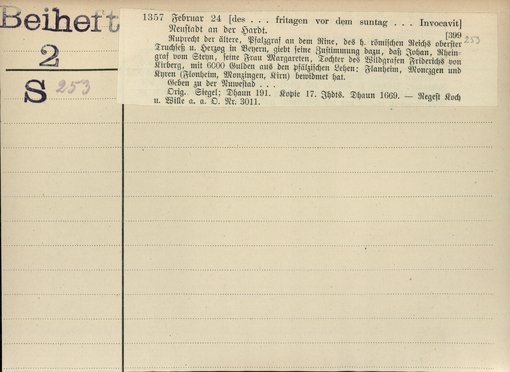 Beiheft
2
S 253
1357 Februar 24 [des . . . fritagen vor dem suntag . . . Invocavit]
Neustadt an der Hardt. [399
253
Ruprecht der ältere, Pfalzgraf an dem Rine, des h. römischen Reichs oberster
Truchseß u. Herzog in Beyern, giebt seine Zustimmung dazu, daß Johan, Rhein-
graf vom Steyn, seine Frau Margareten, Tochter des Wildgrafen Friderichs von
Kirberg, mit 6000 Gulden aus den pfälzischen Lehen: Flanheim, Monczgen und
Kyren (Flonheim, Monzingen, Kirn) bewidmet hat.
Geben zu der Nuwestad . . .
Orig. Siegel; Dhaun 191. Kopie 17. Jhdts. Dhaun 1669. — Regest Koch
u. Wille a. a. O. Nr. 3011.